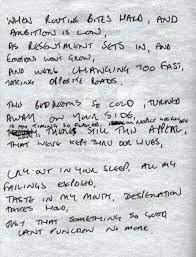 WHEN ROUTINE BITES HARD, AND
AMBITION IS LOW,
AS RESENTMENT SETS IN, AND
EMOTIONS WONT GROW,
AND WERE CHANGING TOO FAST,
TAKING OPPOSITE ROADS.
THIS BEDROOMS SO COLD, TURNED
AWAY ON YOUR SIDE,
IS MY TIMING SO FLAWED,
THERES STILL THIS APPEAL,
THAT WEVE KEPT THRU OUR LIVES,
CRY OUT IN YOUR SLEEP, ALL MY
FAILINGS EXPOSED,
TASTE IN MY MOUTH, DESPERATION
TAKES HOLD,
JUST THAT SOMETHING SO GOOD
CANT FUNCTION NO MORE